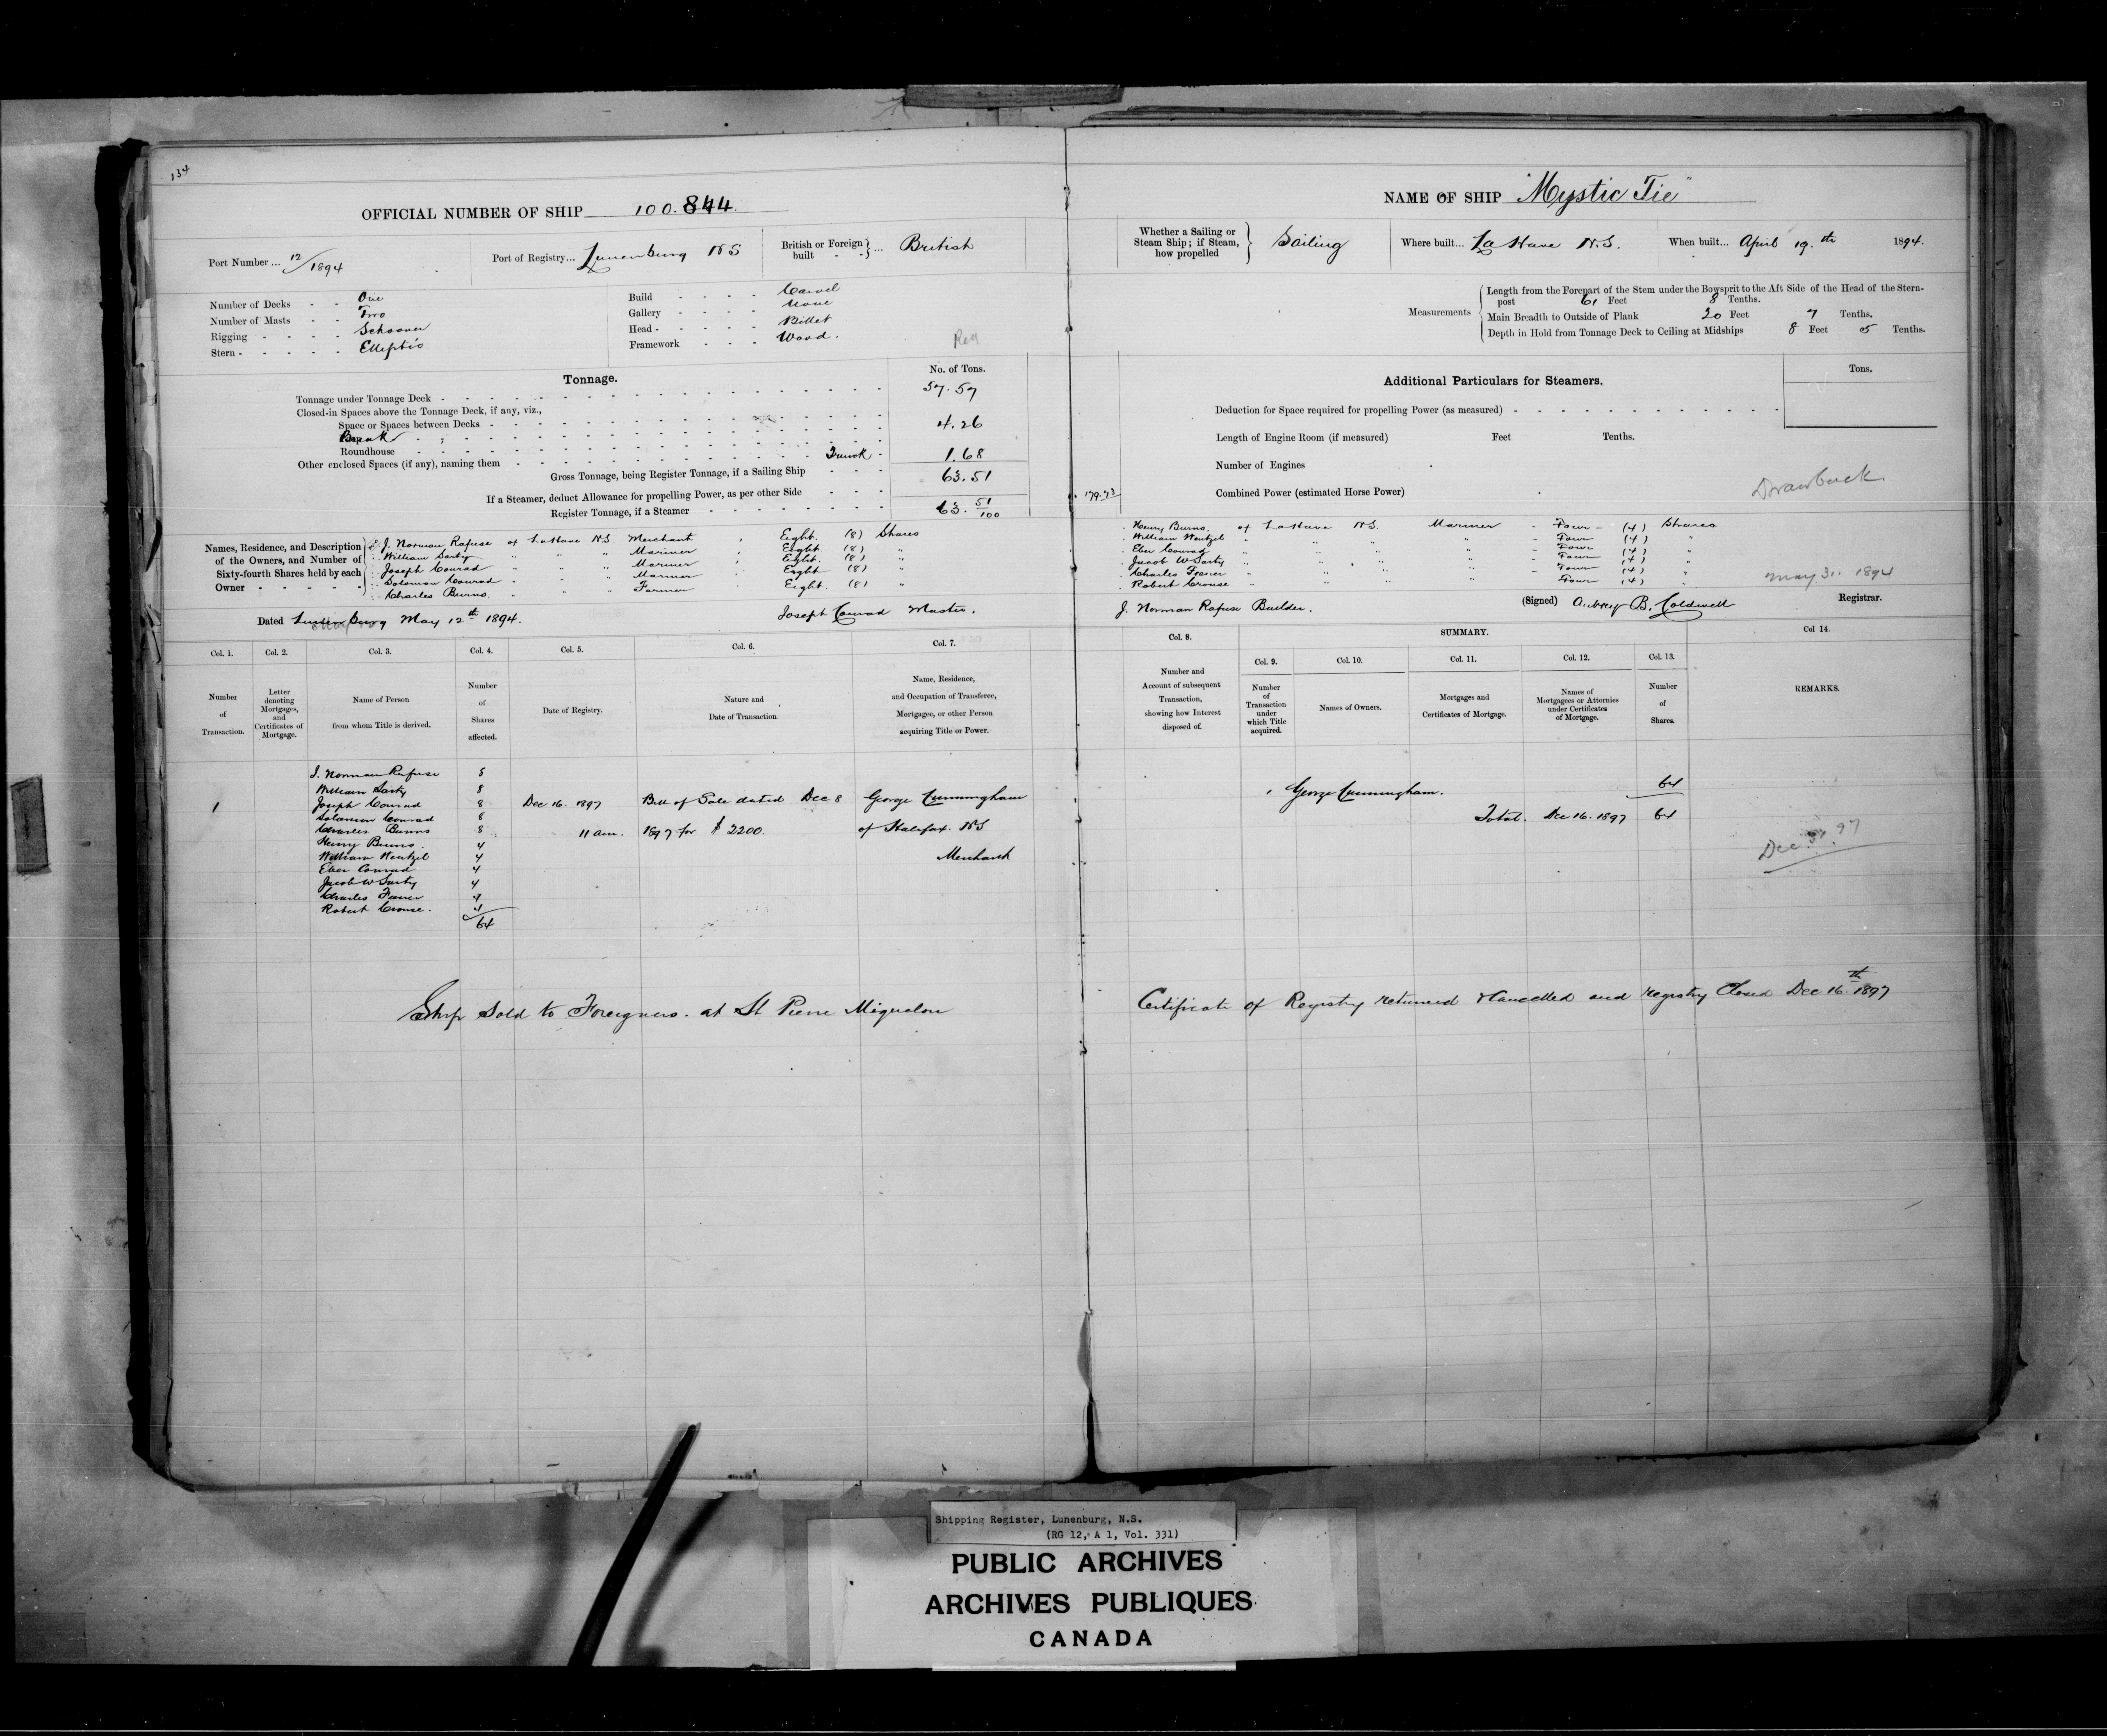 134
OFFICIAL NUMBER OF SHIP 100.844.
Port Number ... 12/1894
Port of Registry... Lunenburg NS
British or Foreign built ... British
Number of Decks - - One
Number of Masts - - Two
Rigging - - - - Schooner
Stern - - - - - Elliptic
Build - - - - Carvel
Gallery - - - - None
Head - - - - - Billet
Framework - - - Wood.
Reg
Tonnage.
No. of Tons.
Tonnage under Tonnage Deck - 57.57
Closed-in Spaces above the Tonnage Deck, if any, viz.,
Space or Spaces between Decks - 4.26
Break
Roundhouse
Other enclosed Spaces (if any), naming them - Trunk - 1.68
Gross Tonnage, being Register Tonnage, if a Sailing Ship - - - 63.51
If a Steamer, deduct Allowance for propelling Power, as per other Side - - -
Register Tonnage, if a Steamer - 63. 51/100
Names, Residence, and Description of the Owners, and Number of Sixty-fourth Shares held by each Owner
J. Norman Rafuse of LaHave N.S. Merchant , Eight. (8) Shares
William Sarty " " " Mariner , Eight (8) "
Joseph Conrad " " " Mariner , Eight. (8) "
Solomon Conrad " " " Mariner Eight (8) "
Charles Burns. " " " Farmer Eight. (8) "
Dated Lunenburg May 12th 1894. Joseph Conrad Master.
Col. 1. Col. 2. Col. 3. Col. 4. Col. 5. Col. 6. Col. 7.
Number of Transaction.
Letter denoting Mortgages, and Certificates of Mortgage.
Name of Person from whom Title is derived.
Number of Shares affected.
Date of Registry.
Nature and Date of Transaction.
Name, Residence, and Occupation of Transferee, Mortgagee, or other Person acquiring Title or Power.
J. Norman Rafuse 8
William Sarty 8
1 Joseph Conrad 8 Dec 16. 1897 Bill of Sale dated Dec 8 George Cunningham
Solomon Conrad 8
Charles Burns 8 11 am. 1897 for $2200. of Halifax. NS
Henry Burns. 4
William Wentzel 4 Merchant
Eber Conrad 4
Jacob W Sarty 4
Charles 4
Robert Crouse. 4
64
Ship Sold to Foreigners. at St Pierre Miquelon
NAME OF SHIP "Mystic Tie"
Whether a Sailing or Steam Ship; if Steam, how propelled Sailing
Where built... La Have N.S.
When built... April 19.th 1894.
Measurements
Length from the Forepart of the Stem under the Bowsprit to the Aft Side of the Head of the Stern-
post 61 Feet 8 Tenths.
Main Breadth to Outside of Plank 20 Feet 7 Tenths.
Depth in Hold from Tonnage Deck to Ceiling at Midships 8 Feet 05 Tenths.
Additional Particulars for Steamers.
Tons.
Deduction for Space required for propelling Power (as measured) -
Length of Engine Room (if measured) Feet Tenths.
Number of Engines
179.73
Combined Power (estimated Horse Power)
Drawback
Henry Burns. of LaHave N.S. Mariner - Four - (4) Shares
William Wentzel " " " " - Four (4) "
Eber Conrad " " " " - Four (4)
Jacob W Sarty " " " " - Four (4) "
Charles " " " " - Four (4) "
Robert Crouse " " " " Four (4) "
May 31. 1894
J. Norman Rafuse Builder. (Signed) Aubrey B. Caldwell Registrar.
Col. 8. SUMMARY. Col 14.
Col. 9. Col. 10. Col. 11. Col. 12. Col. 13.
Number and Account of subsequent Transaction, showing how Interest disposed of.
Number of Transaction under which Title acquired.
Names of Owners.
Mortgages and Certificates of Mortgage.
Names of Mortgagees or Attornies under Certificates of Mortgage.
Number of Shares.
REMARKS.
1 George Cunningham. 64
Total. Dec 16. 1897 64
Dec. 31. 97
Certificate of Registry returned & Cancelled and registry Closed Dec 16.th 1897
Shipping Register, Lunenburg, N.S.
(RG 12, A 1, Vol. 331)
PUBLIC ARCHIVES
ARCHIVES PUBLIQUES
CANADA